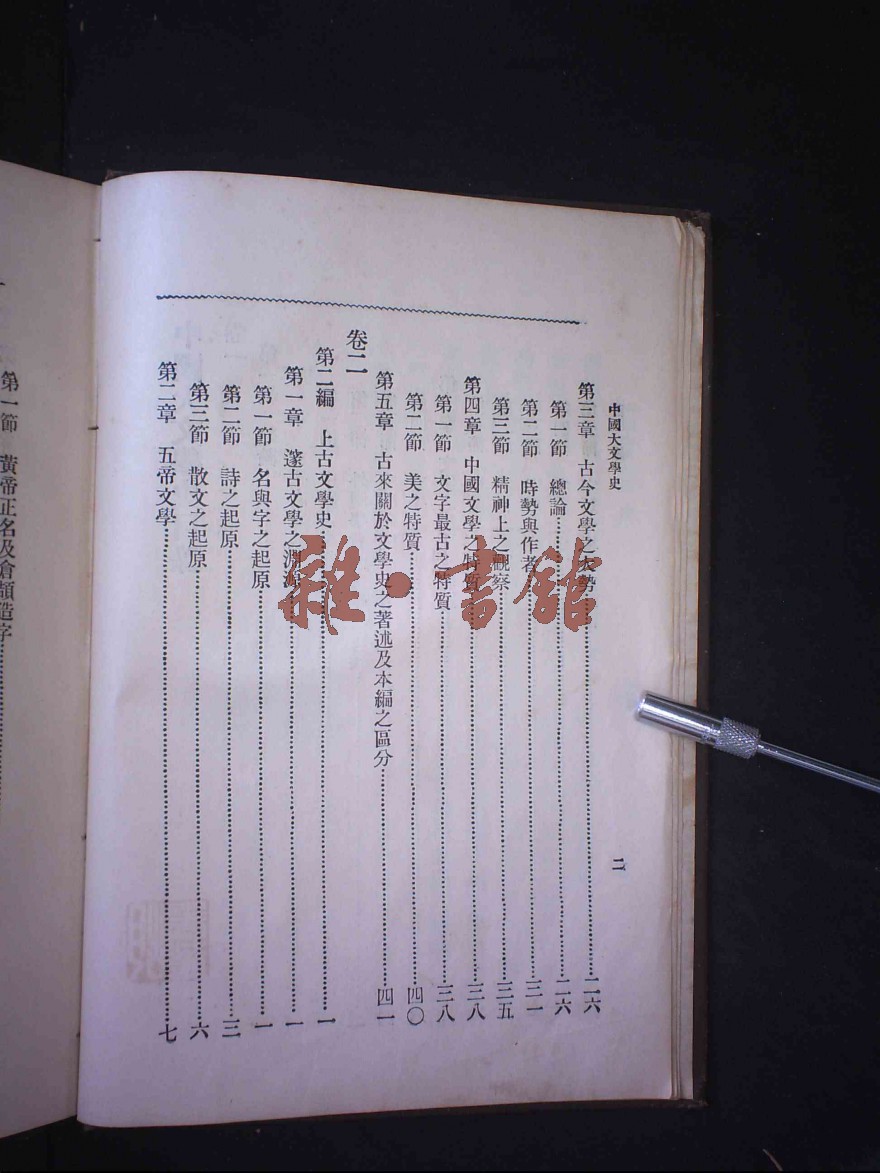 中國大文學史
二
第三章 古今文學之大勢 二六
第一節 總論 二六
第二節 時勢與作者 三一
第三節 精神上之觀察 三五
第四章 中國文學之特質 三八
第一節 文字最古之特質 三八
第二節 美之特質 四〇
第五章 古來關於文學史之著述及本編之區分 四一
卷二
第二編 上古文學史 一
第一章 邃古文學之淵源 一
第一節 名與字之起原 一
第二節 詩之起原 三
第三節 散文之起原 六
第二章 五帝文學 七
第一節 黃帝正名及倉頡造字
雜·書館